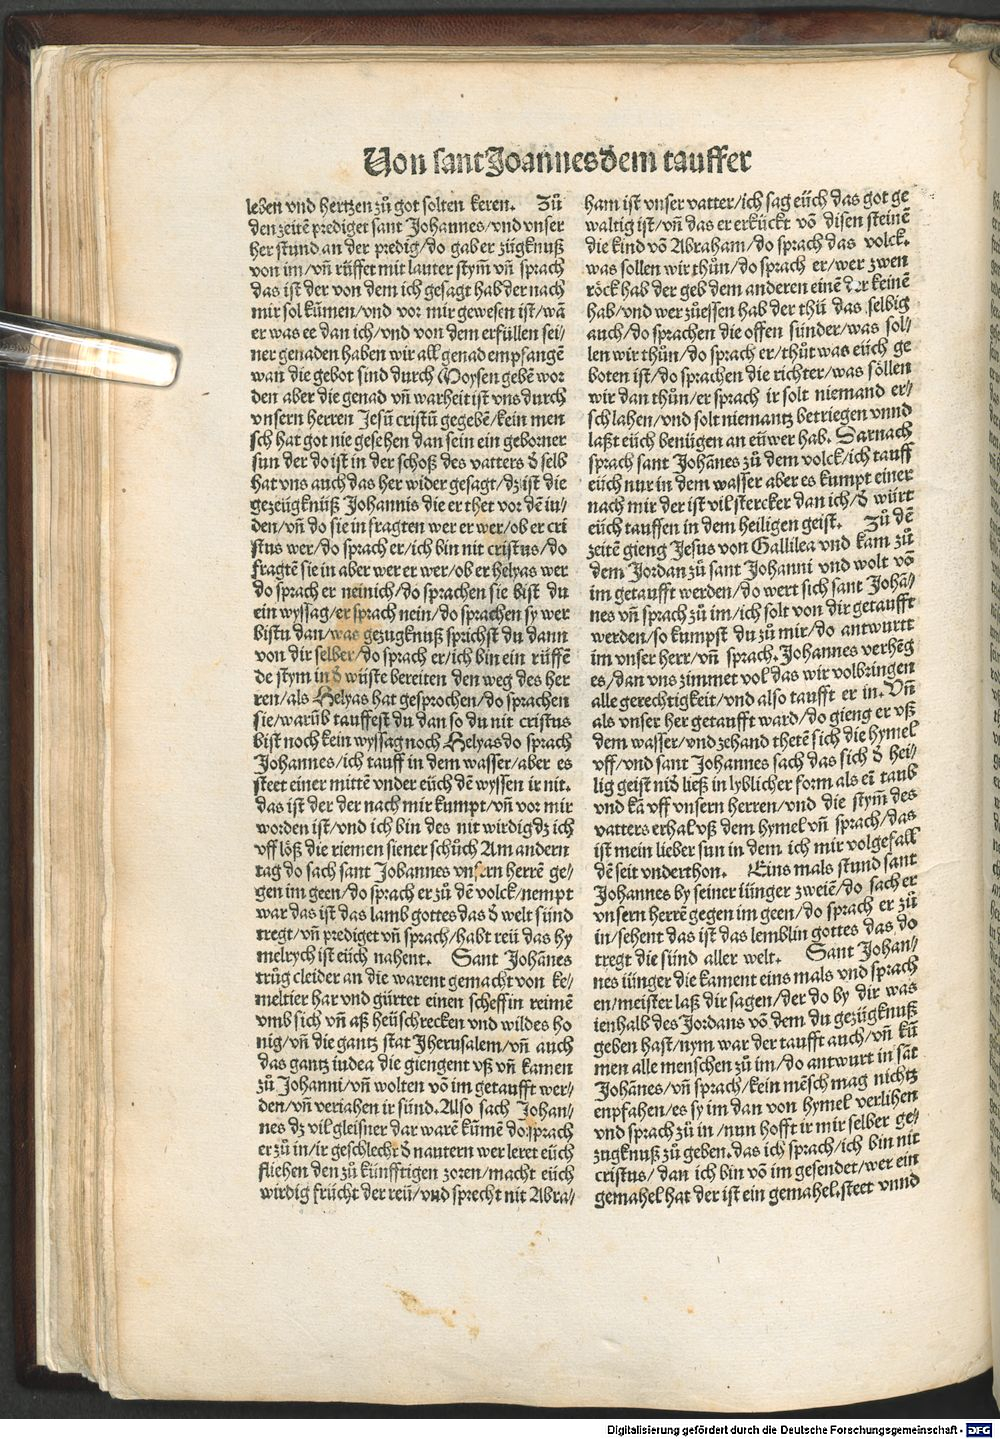 Von sant Joannes dem tauffer
leben vnd hertzen zů got solten keren. Zů
den zeitē prediget sant Johannes/vnd vnser
her stund an der predig/do gab er zügknuß
von im/vñ rüffet mit lauter stym̃ vñ sprach
das ist der von dem ich gesagt hab der nach
mir sol kūmen/vnd vor mir gewesen ist/wā
er was ee dan ich/vnd von dem erfüllen sei/
ner genaden haben wir all genad empfangē
wan die gebot sind durch Moysen gebē wor
den aber die genad vñ warheit ist vns durch
vnsern herren Jesū cristū gegebē/kein men
sch hat got nie gesehen dan sein ein geborner
sun der do ist in der schoß des vatters đ selb
hat vns auch das her wider gesagt/dz ist die
gezeügknüß Johannis die er thet vor dē iu/
den/vñ do sie in fragten wer er wer/ob er cri
stus wer/do sprach er/ich bin nit cristus/do
fragtē sie in aber wer er wer/ob er helyas wer
do sprach er nein ich/do sprachen sie bist du
ein wyssag/er sprach nein/do sprachen sy wer
bistu dan/was gezugknuß sprichst du dann
von dir selber/do sprach er/ich bin ein rüffē
de stym in đ wüste bereiten den weg des her
ren/als Helyas hat gesprochen/do sprachen
sie/warūb tauffest du dan so du nit cristus
bist noch kein wyssag noch Helyas do sprach
Johannes/ich tauff in dem wasser/aber es
steet einer mittē vnder eüch dē wyssen ir nit.
das ist der der nach mir kumpt/vñ vor mir
worden ist/vnd ich bin des nit wirdig dz ich
vff löß die riemen siener schůch Am andern
tag do sach sant Johannes vnsern herrē ge/
gen im geen/do sprach er zů dē volck/nempt
war das ist das lamb gottes das đ welt sünd
tregt/vñ prediget vñ sprach/habt reü das hy
melrych ist eüch nahent. Sant Johānes
trůg cleider an die warent gemacht von ke/
meltier har vnd gürtet einen scheffin reimē
vmb sich vñ aß heüschrecken vnd wildes ho
nig/vñ die gantz stat Jherusalem/vñ auch
das gantz iudea die giengent vß vñ kamen
zů Johanni/vñ wolten vō im getaufft wer/
den/vñ veriahen ir sünd. Also sach Johan/
nes dz vil gleisner dar warē kūmē do sprach
er zů in/ir geschlecht đ nautern wer leret eüch
fliehen den zů künfftigen zoren/macht eüch
wirdig frücht der reü/vnd sprecht nit Abra/
ham ist vnser vatter/ich sag eüch das got ge
waltig ist/vñ das er erkückt vō disen steinē
die kind vō Abraham/do sprach das volck.
was sollen wir thůn/do sprach er/wer zwen
röck hab der geb dem anderen einē der keinē
hab/vnd wer zůessen hab der thů das selbig
auch/do sprachen die offen sünder/was sol/
len wir thůn/do sprach er/thůt was eüch ge
boten ist/do sprachen die richter/was söllen
wir dan thün/er sprach ir solt niemand er/
schlahen/vnd solt niemantz betriegen vnnd
laßt eüch benügen an eüwer hab. Darnach
sprach sant Johānes zů dem volck/ich tauff
eüch nur in dem wasser aber es kumpt einer
nach mir der ist vil stercker dan ich/đ würt
eüch tauffen in dem heiligen geist. Zů dē
zeitē gieng Jesus von Gallilea vnd kam zů
dem Jordan zů sant Johanni vnd wolt vō
im getaufft werden/do wert sich sant Johā/
nes vñ sprach zů im/ich solt von dir getaufft
werden/so kumpst du zů mir/do antwurtt
im vnser herr/vñ sprach. Johannes verhēg
es/dan vns zimmet vol das wir volbringen
alle gerechtigkeit/vnd also taufft er in. Vñ
als vnser her getaufft ward/do gieng er vß
dem wasser/vnd zehand thetē sich die hymel
vff/vnd sant Johannes sach das sich đ hei/
lig geist niđ ließ in lyblicher form als eī taub
vnd kā vff vnsern herren/vnd die stym̃ des
vatters erhal vß dem hymel vñ sprach/das
ist mein lieber sun in dem ich mir volgefall
dē seit vnderthon. Eins mals stund sant
Johannes by seiner iünger zweiē/do sach er
vnsern herrē gegen im geen/do sprach er zů
in/sehent das ist das lemblin gottes das do
tregt die sünd aller welt. Sant Johan/
nes iünger die kament eins mals vnd sprach
en/meister laß dir sagen/der do by dir was
ienhalb des Jordans vō dem du gezügknuß
geben hast/nym war der taufft auch/vñ kū
men alle menschen zů im/do antwurt in sāt
Johānes/vñ sprach/kein mēsch mag nichtz
enpfahen/es sy im dan von hymel verlihen
vnd sprach zů in/nun hofft ir mir selber ge/
zugknuß zů geben. das ich sprach/ich bin nit
cristus/dan ich bin vō im gesendet/wer ein
gemahel hat der ist ein gemahel. steet vnnd
Digitalisierung gefördert durch die Deutsche Forschungsgemeinschaft - DFG